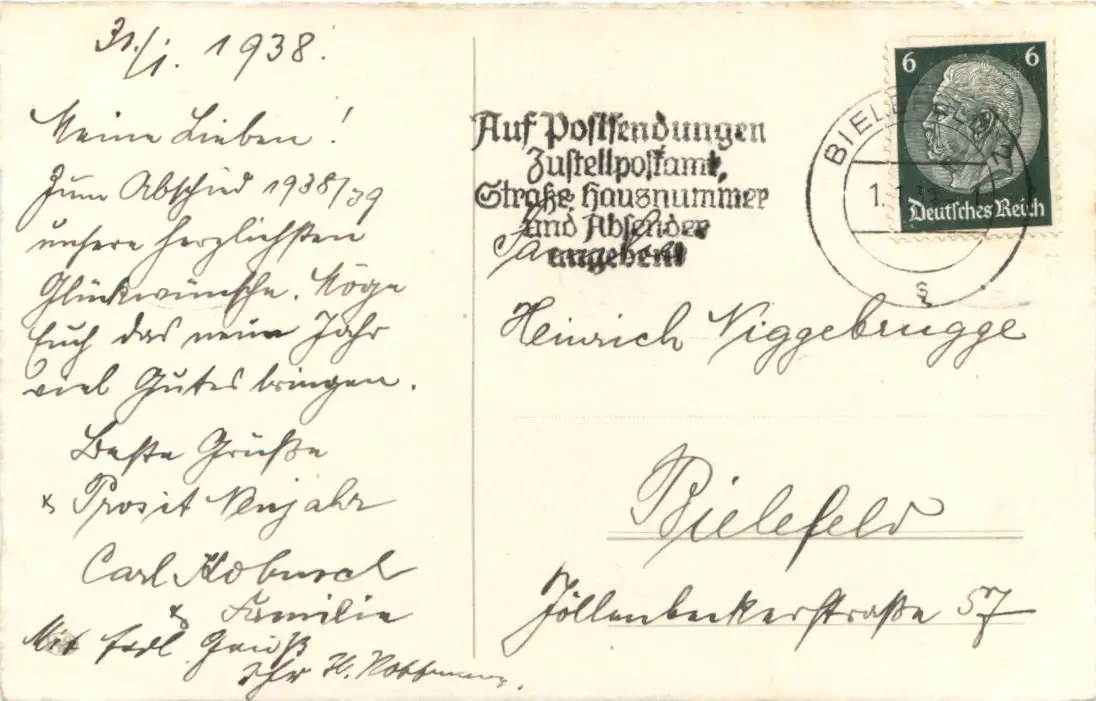 31./1. 1938.
Meine Lieben!
Zum Abschied 1938/39
unsere herzlichsten
Glückwünsche. Möge
Euch das neue Jahr
viel Gutes bringen.
Beste Grüße
& Prosit Neujahr
Carl
& Familie
Mit frdl Gruß
Ihr H.
Auf Postsendungen
Zustellpostamt,
Straße, Hausnummer
und Absender
angeben!
BIELEFELD 2
1.
s
6 6
Deutsches Reich
Heinrich Niggebrugge
Bielefeld
Jöllenbeckerstraße 57